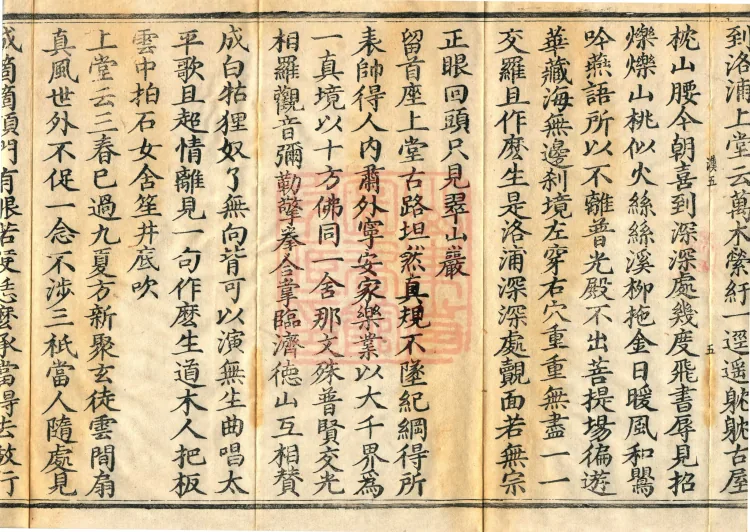 到洛浦上堂云萬木縈紆一逕遥躭躭古屋
漢五
五
枕山腰今朝喜到深深處幾度飛書辱見招
爍爍山桃似火絲絲溪柳拖金日暖風和鸎
吟燕語所以不離普光殿不出菩提場徧遊
華藏海無邊刹境左穿右穴重重無盡一一
交羅且作麽生是洛浦深深處覿面若無宗
正眼回頭只見翠山巖
留首座上堂古路坦然真規不墜紀綱得所
表帥得人内肅外寧安家樂業以大千界為
一真境以十方佛同一舍那文殊普賢交光
相羅觀音彌勒擎拳合臨濟德山互相賛
成白牯狸奴了無向背可以演無生曲唱太
平歌且超情離見一句作麽生道木人把板
雲中拍石女含笙井底吹
上堂云三春已過九夏方新聚玄徒雲間扇
真風世外不促一念不涉三祇當人隨處見
成箇箇頂門有眼若便恁麽承當得去行